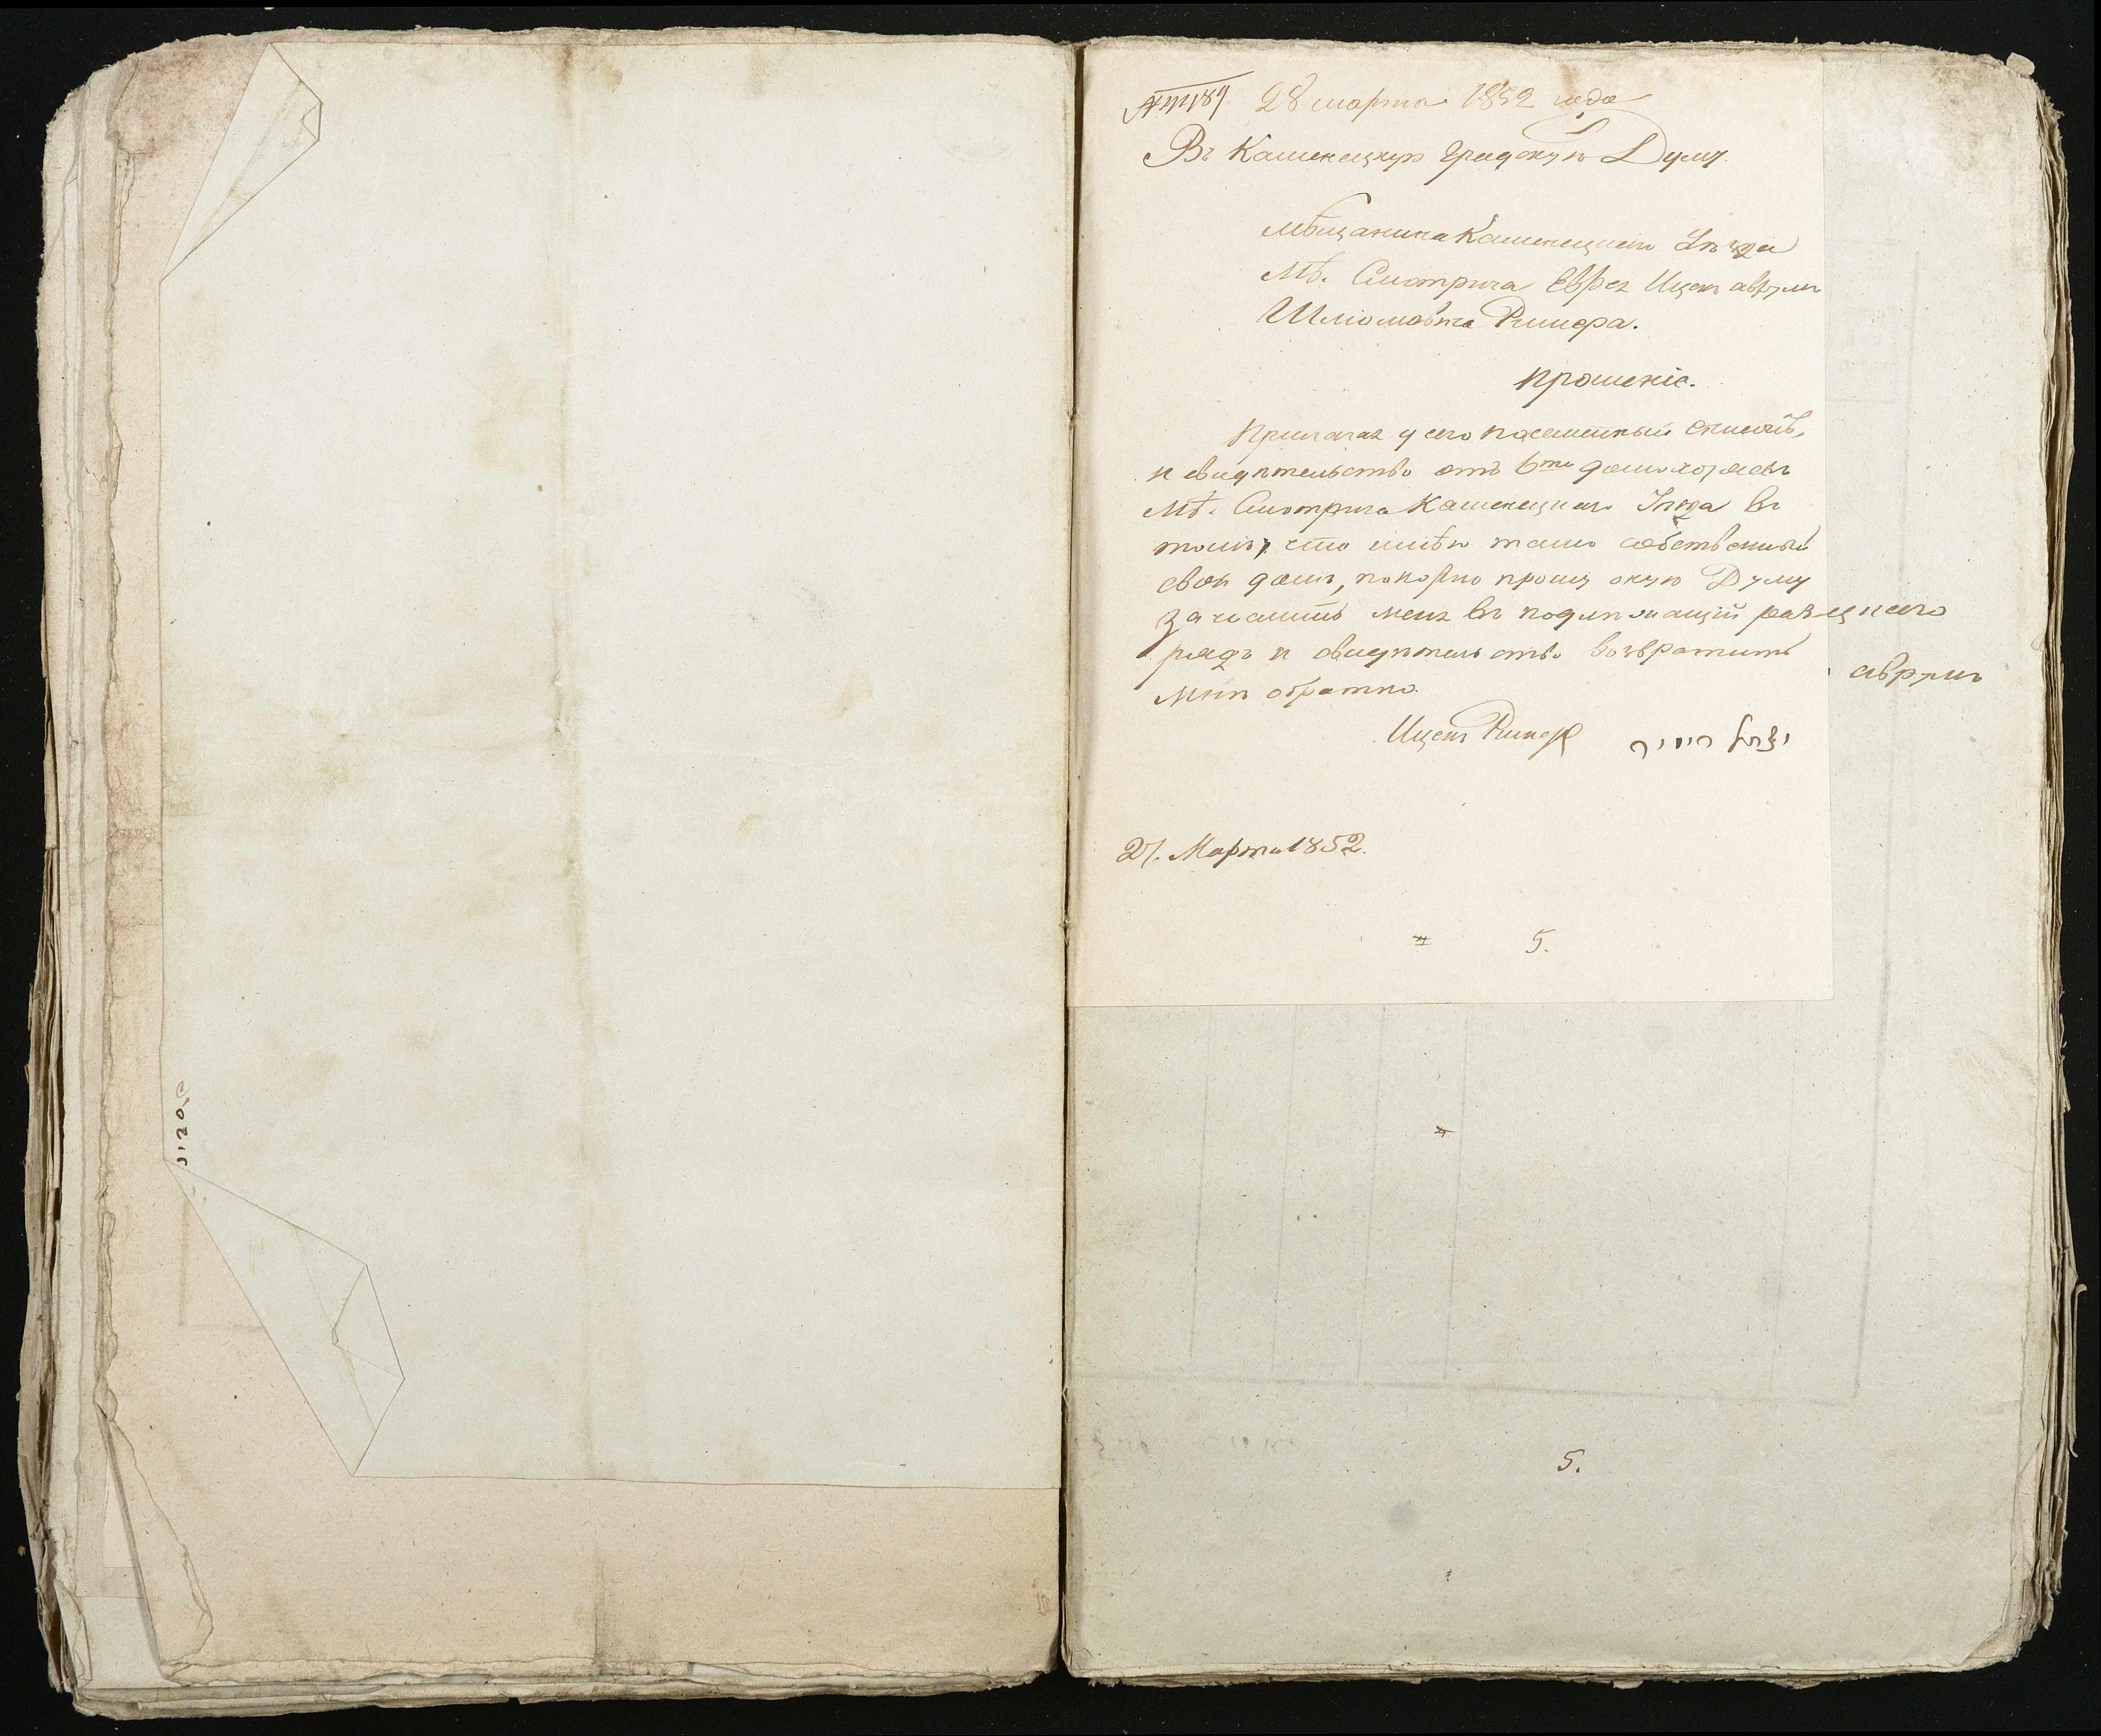 28 марта 1852 года
Въ Каменецкую Градскую Думу
Мѣщанина Каменецкаго Уѣзда
Мѣ. Смотрича Еврея Ицека аврума
Шліомовича Римера.
Прошеніе.
Прилагая у сего посемейный списокъ,
и свидѣтельство отъ 6ти домохозяевъ
Мѣ. Смотрича Каменецкаго Уѣзда въ
томъ, что имѣю тамъ собственный
свой домъ, покорно прошу оную Думу
зачислить меня въ подлежащій раз-
рядъ и свидѣтельство возвратить
мнѣ обратно.
Ицекъ Ример
27. Марта 1852.
5.
цкаго
аврумъ
5.